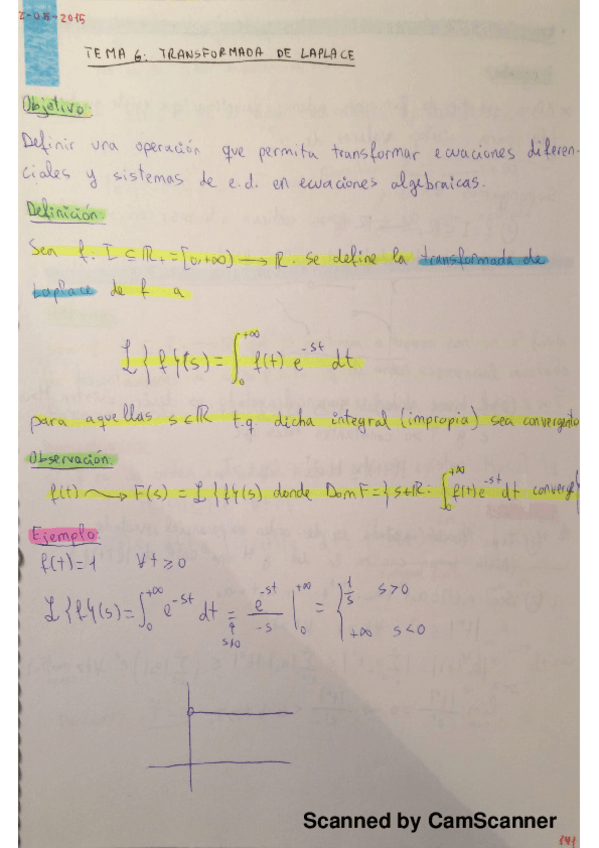 2-03-2015
TEMA 6: TRANSFORMADA DE LAPLACE
Objetivo:
Definir una operación que permita transformar ecuaciones diferen-
ciales y sistemas de e.d. en ecuaciones algebraicas.
Definición:
Sea f: I ⊆ ℝ₊ = [0,+∞) → ℝ. se define la transformada de
Laplace de f a
ℒ{f}(s) = ∫₀^{+∞} f(t) e^{-st} dt
para aquellas s∈ℝ t.q. dicha integral (impropia) sea convergente
Observación:
f(t) ⇝ F(s) = ℒ{f}(s) donde Dom F = {s∈ℝ: ∫₀^{+∞} f(t)e^{-st} dt converge}
Ejemplo:
f(t)=1 ∀t≥0
ℒ{f}(s) = ∫₀^{+∞} e^{-st} dt = e^{-st}/-s |₀^{+∞} = { 1/s s>0
s≠0 +∞ s<0
Scanned by CamScanner
141